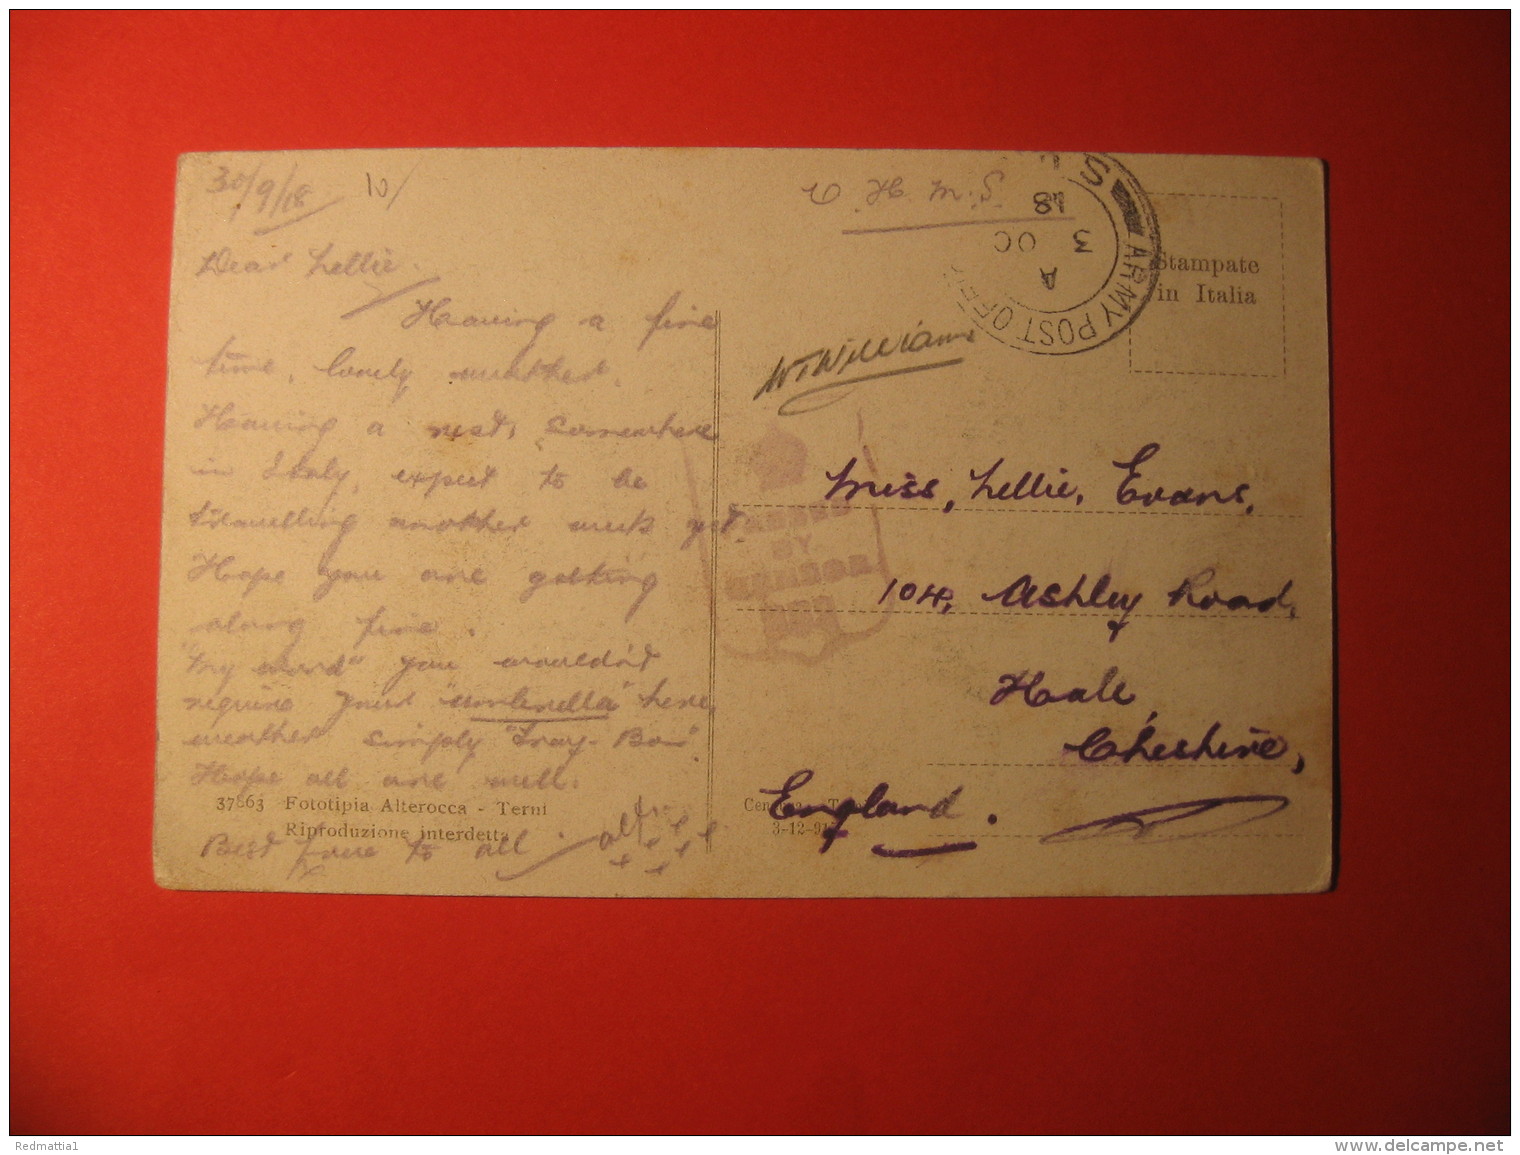 30/9/18 10/
Dear Nellie.
Having a fine
time, lovely weather.
Having a rest, somewhere
in Italy, expect to be
travelling another week yet.
Hope you are getting
along fine.
"My word" you wouldn't
require your "umbrella" here,
weather simply "Tray-Bon"
Hope all are well.
37863 Fototipia Alterocca - Terni
Riproduzione interdetta
Best love to all. Alf.
O.H.M.S.
ARMY POST OFFICE S
A
3 OC
18
Stampate
in Italia
WTWilliams
PASSED
BY
CENSOR
Miss, Nellie, Evans,
104, Ashley Road,
Hale,
Cheshire,
England.
3-12-91
Redmattia1
www.delcampe.net